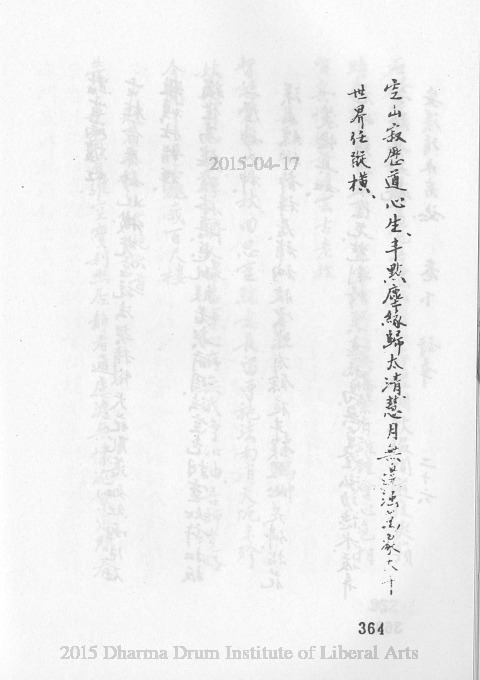 空山寂歷道心生、半點塵緣歸太清、慧月無邊大千
世界任縱橫、
2015-04-17
364
2015 Dharma Drum Institute of Liberal Arts